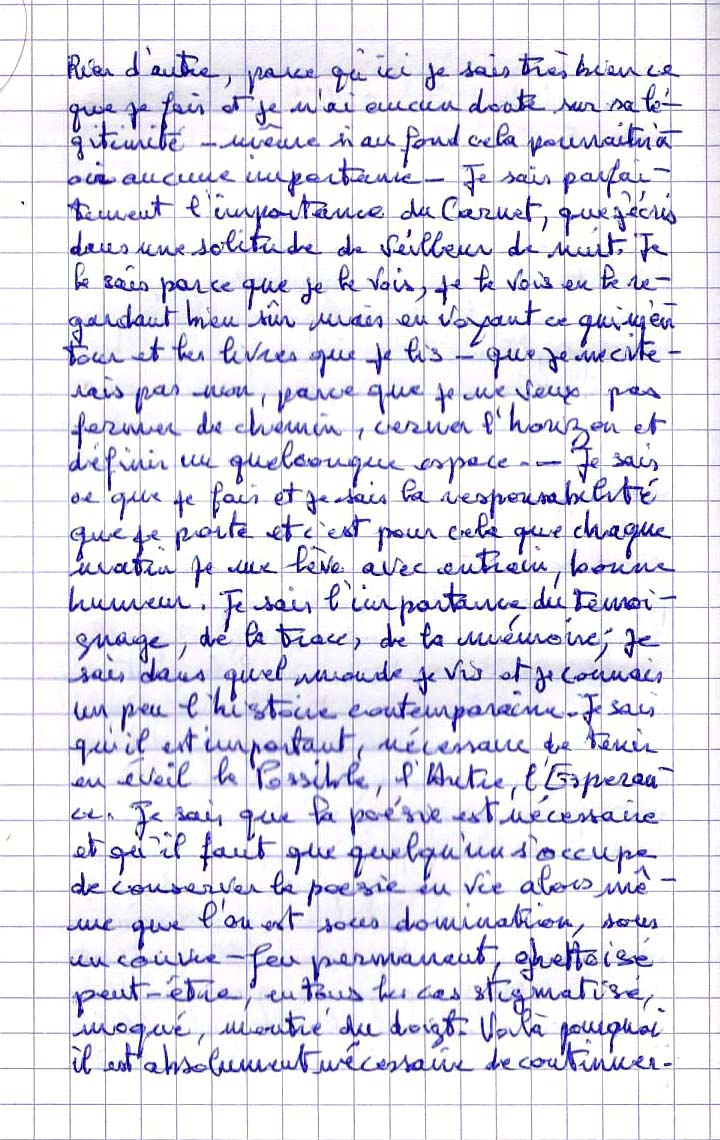 Rien d'autre, parce qu'ici je sais très bien ce
que je fais et je n'ai aucun doute sur sa lé-
gitimité - même si au fond cela pourrait n'a
voir aucune importance - Je sais parfai-
tement l'importance du Carnet, que j'écris
dans une solitude de veilleur de nuit. Je
le sais parce que je le vois, je le vois en le re-
gardant bien sûr mais en voyant ce qui m'en
toure et les livres que je lis - que je ne cite-
rais pas non, parce que je ne veux pas
fermer de chemin, cerner l'horizon et
définir un quelconque espace. - Je sais
ce que je fais et je sais la responsabilité
que je porte et c'est pour cela que chaque
matin je me lève avec entrain, bonne
humeur. Je sais l'importance du témoi-
gnage, de la trace, de la mémoire, je
sais dans quel monde je vis et je connais
un peu l'histoire contemporaine. Je sais
qu'il est important, nécessaire de tenir
en éveil le Possible, l'Autre, l'Esperan-
ce. Je sais que la poésie est nécessaire
et qu'il faut que quelqu'un s'occupe
de conserver la poésie en vie alors mê-
me que l'on est sous domination, sous
un couvre-feu permanent, ghettoisé
peut-être, en tous les cas stigmatisé,
moqué, montré du doigt. Voilà pourquoi
il est absolument nécessaire de continuer.